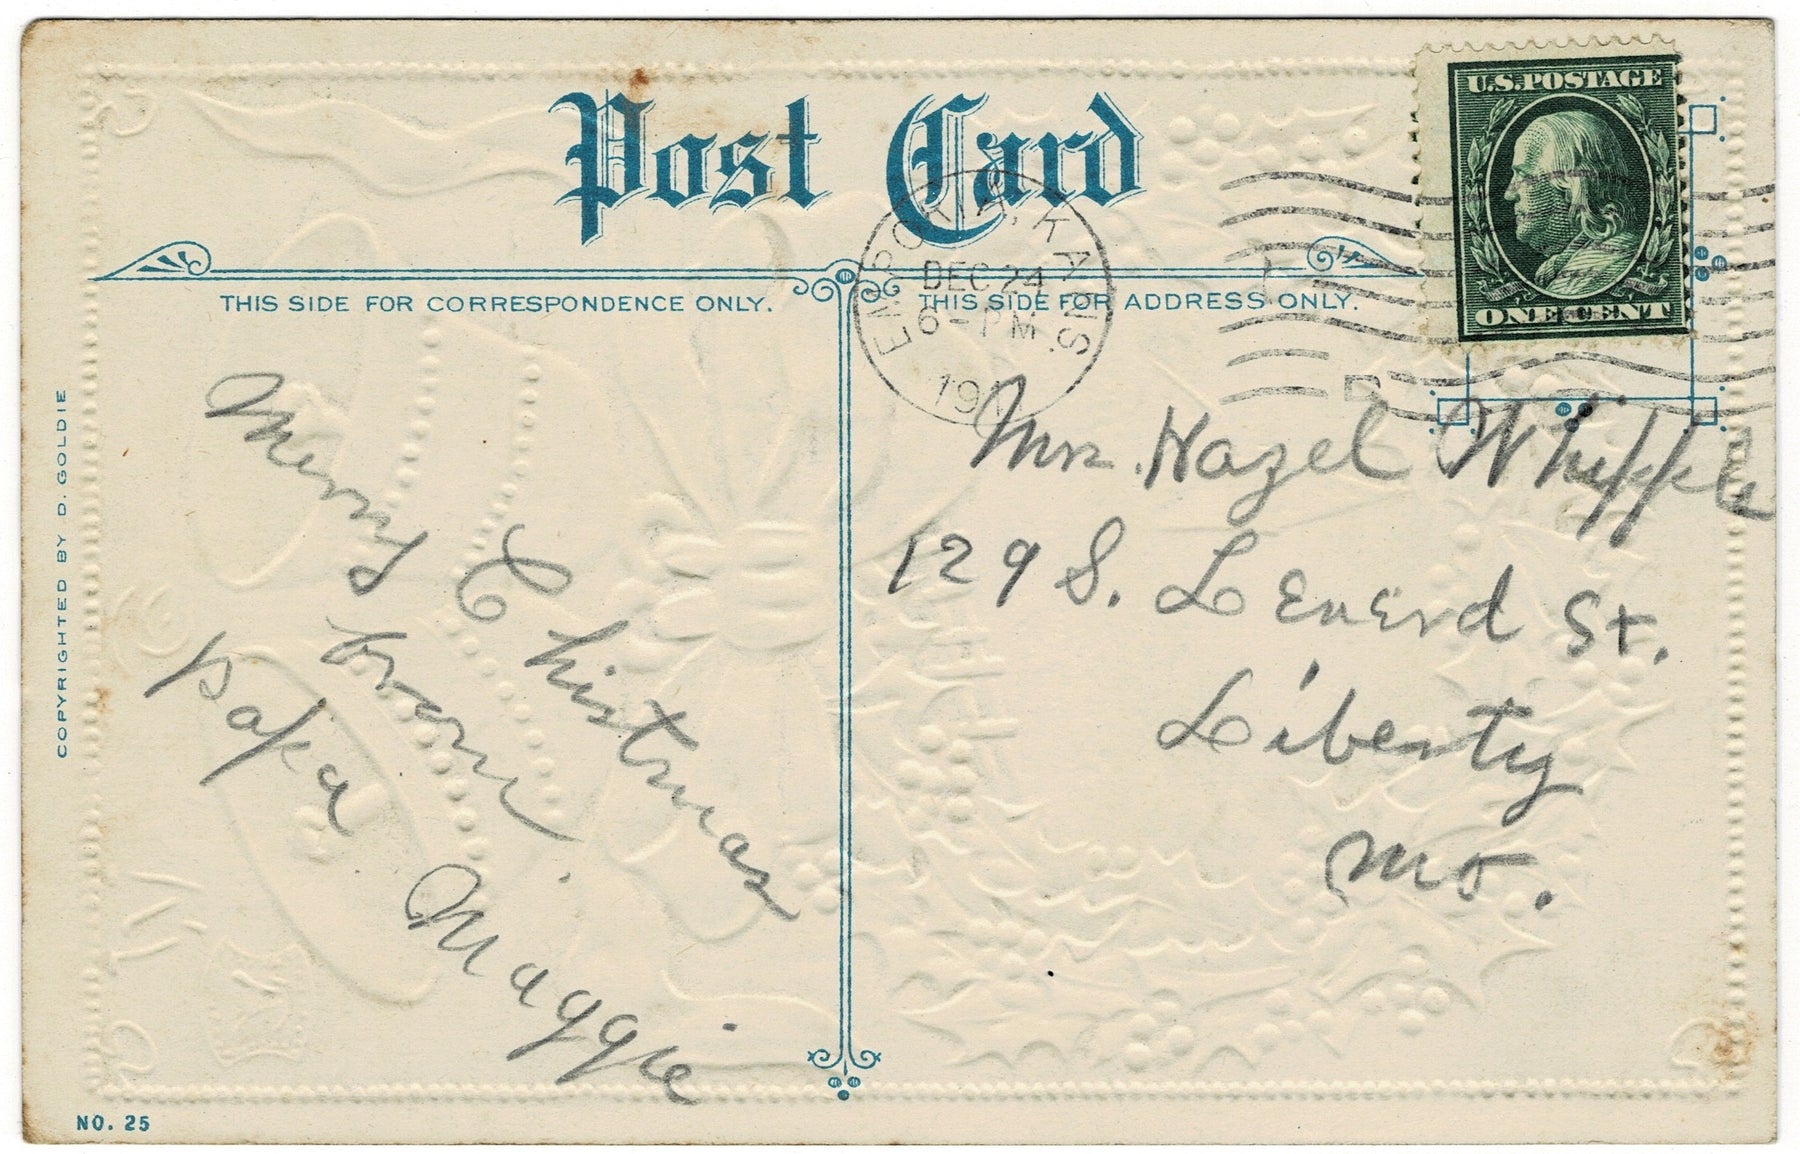 Post Card
U.S. POSTAGE
ONE CENT
EMPORIA, KANS.
DEC 24
6 - PM
191
THIS SIDE FOR CORRESPONDENCE ONLY.
THIS SIDE FOR ADDRESS ONLY.
Merry
Christmas
from
papa Maggie
Mrs. Hazel Whipple
129 S. Lenerd St.
Liberty
Mo.
COPYRIGHTED BY D. GOLDIE
NO. 25